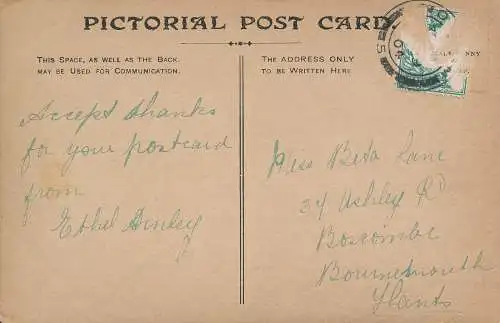 PICTORIAL POST CARD
THIS SPACE, AS WELL AS THE BACK,
MAY BE USED FOR COMMUNICATION.
THE ADDRESS ONLY
TO BE WRITTEN HERE
Accept thanks
for your postcard
from
Ethel
Miss Beta Lane
34 Ashley Rd
Boscombe
Bournemouth
Hants